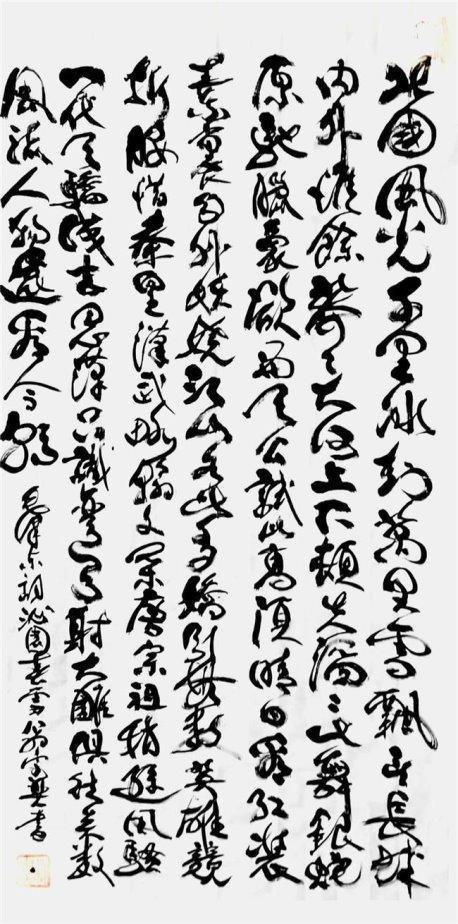 北國風光千里冰封萬里雪飄望長城
内外惟餘莽々大河上下頓失滔々山舞銀蛇
原馳臘象欲與天公試比高須晴日看紅裝
素裹分外妖嬈江山如此多嬌引無數英雄競
折腰惜秦皇漢武略輸文采唐宗祖稍遜風騷
一代天驕成吉思漢只識彎弓射大雕俱往矣數
風流人物還看今朝 毛澤東詞沁園春雪 書